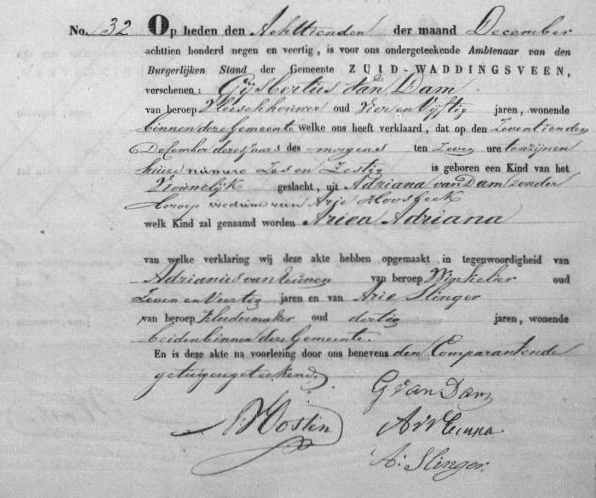 No. 32 Op heden den Achttienden der maand December
achttien honderd negen en veertig, is voor ons ondergeteekende Ambtenaar van den
Burgerlijken Stand der Gemeente ZUID-WADDINGSVEEN,
verschenen: Gijsbertus van Dam
van beroep Vleeschhouwer oud Vier en Vijftig jaren, wonende
binnen deze Gemeente welke ons heeft verklaard, dat op den Zeventienden
December dezes jaars des morgens ten Zeven ure ten zijnen
huize numero Zes en Zestig is geboren een Kind van het
Vrouwelijk geslacht, uit Adriana van Dam zonder
beroep weduwe van Arie
welk Kind zal genaamd worden Ariea Adriana
van welke verklaring wij deze akte hebben opgemaakt in tegenwoordigheid van
Adrianus van van beroep Winkelier oud
Zeven en Veertig jaren en van Arie Slinger
van beroep Kleedermaker oud dertig jaren, wonende
beiden binnen deze Gemeente.
En is deze akte na voorlezing door ons benevens den Comparant en de
getuigen geteekend.
G van Dam
A.
A. Slinger